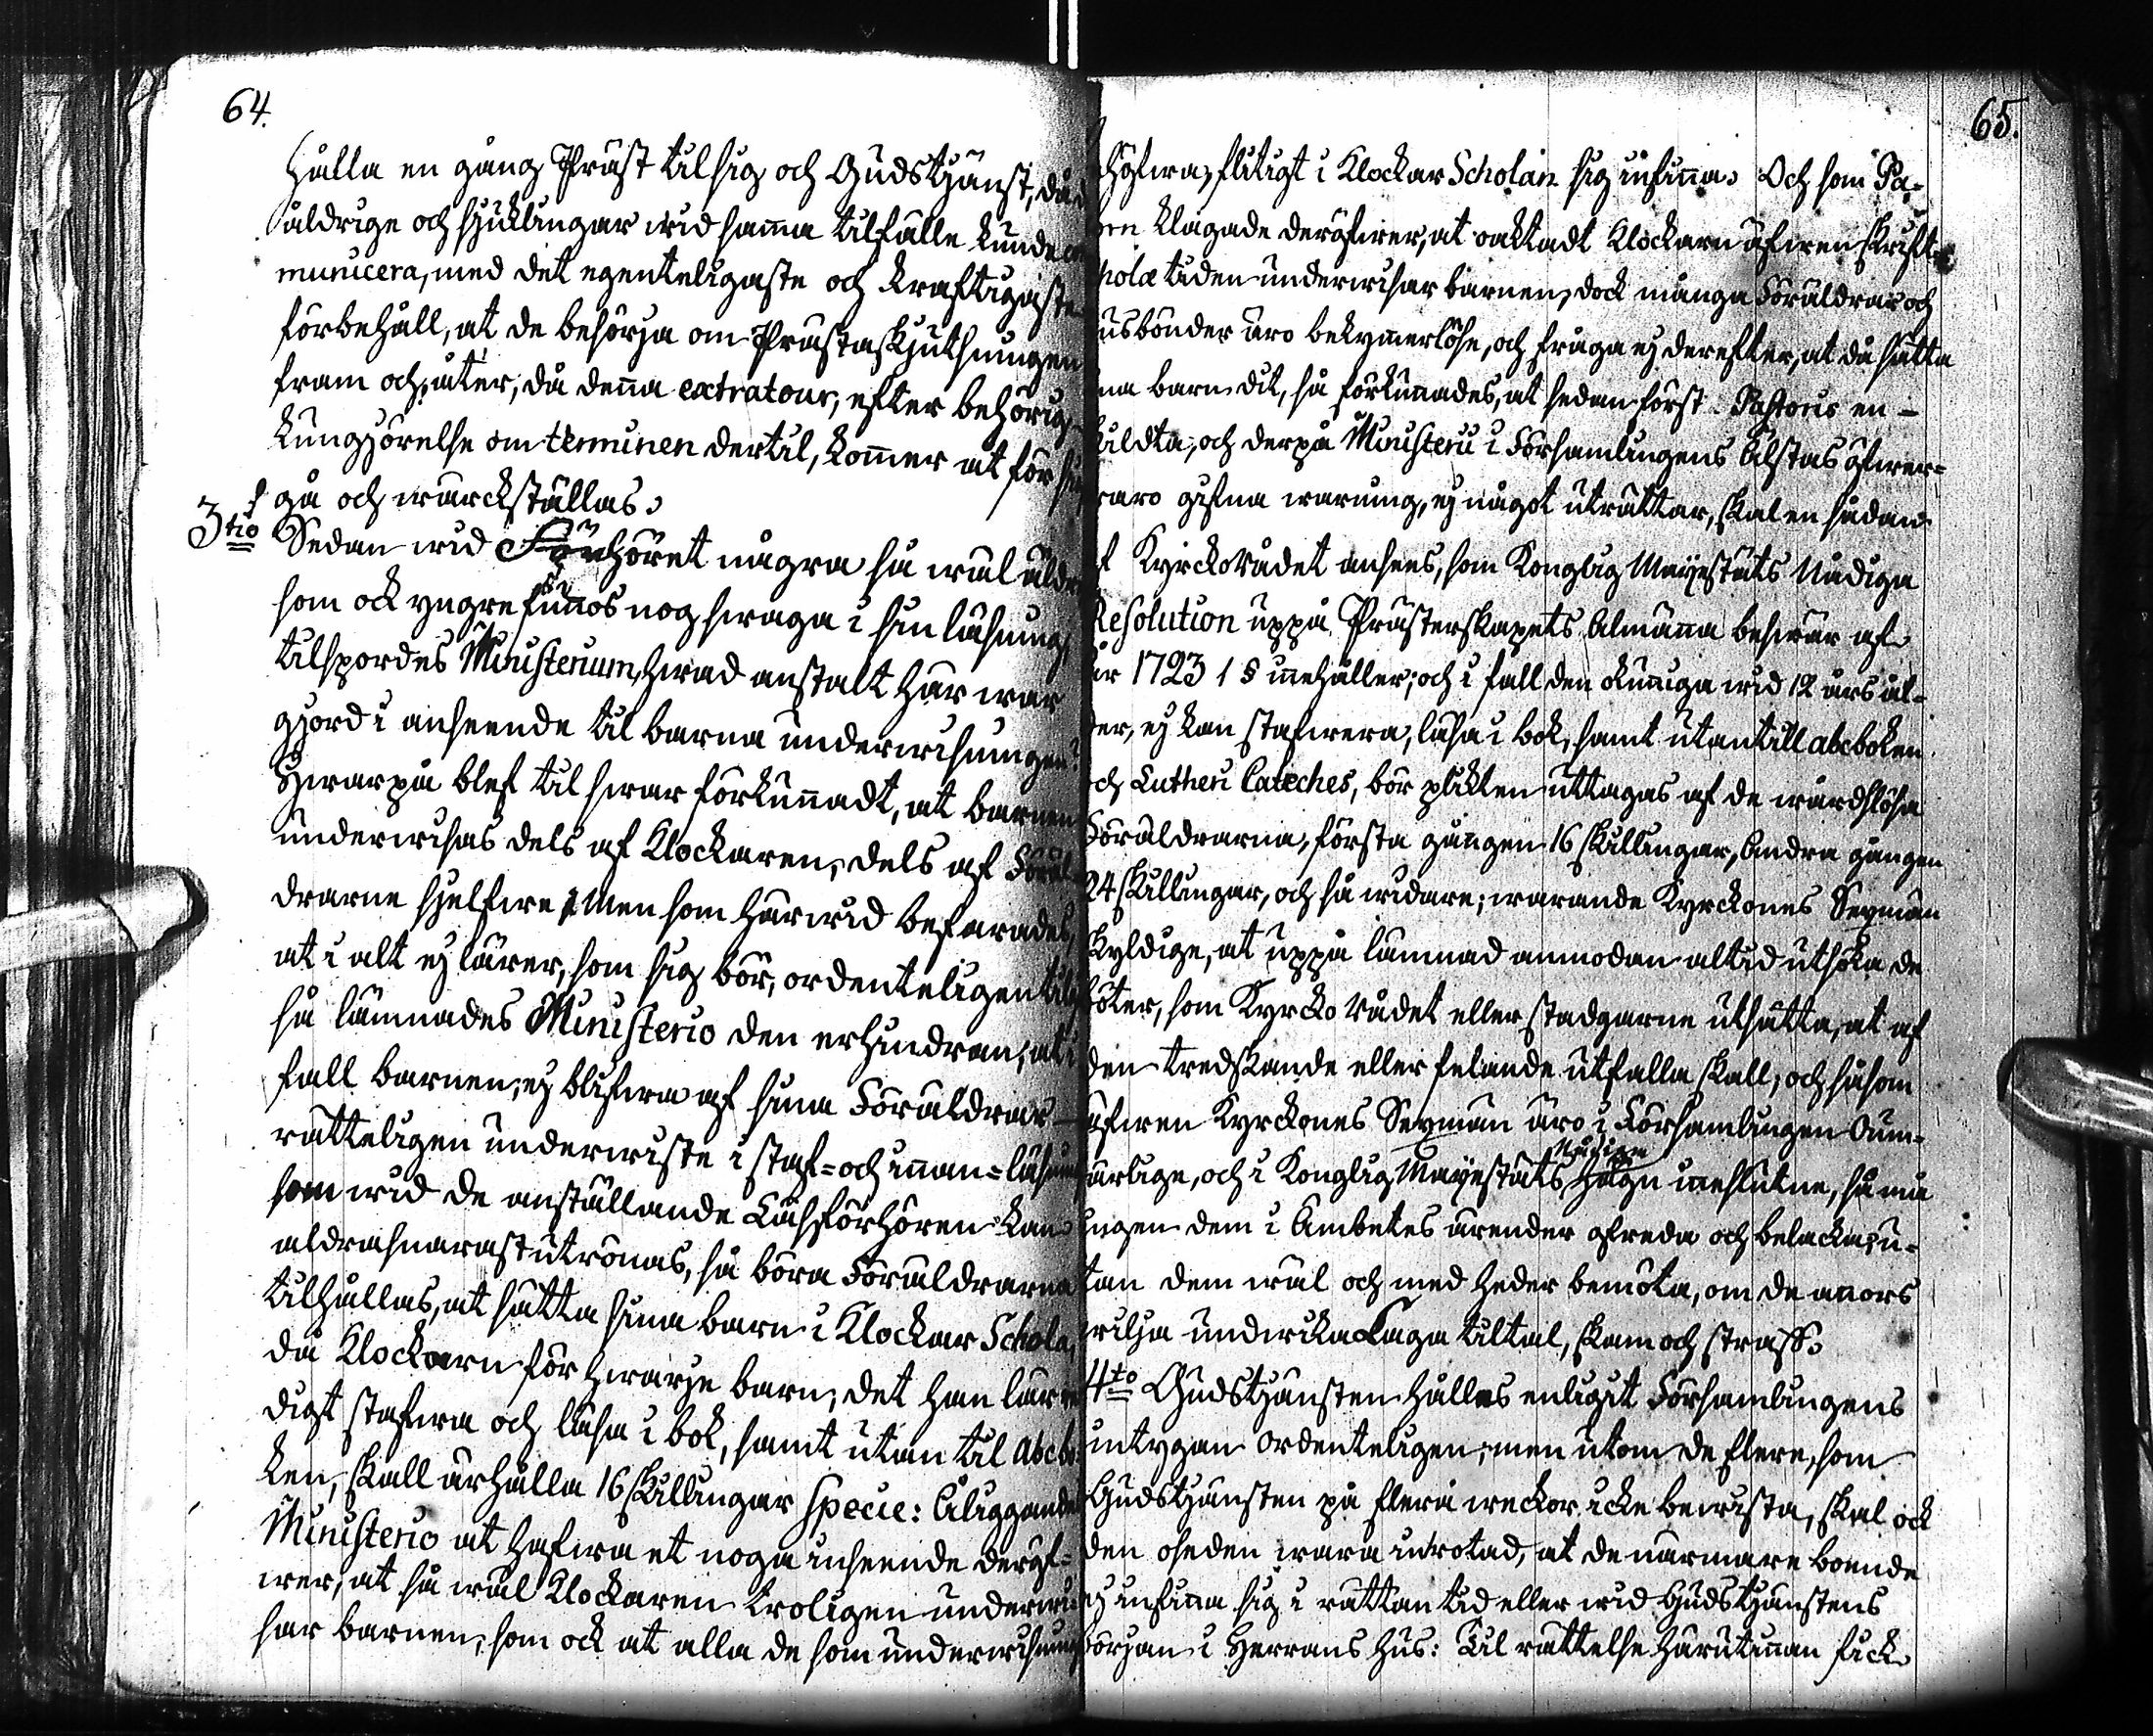 64.
hålla en gång Präst til sig och Gudstjänst, då
åldrige och sjuklingar wid samma tilfälle kunde
municera, med det egenteligaste och kraftigaste
förbehåll, at de besörja om Prästaskjutsningen
fram och åter, då denna extratour, efter behörig
kungjörelse om terminen dertil, kommer at för sig
gå och wärckställas.
3tio Sedan wid Förhöret några så wäl äldre
som ock yngre funnos nog swaga i sin läsning,
tilspordes Ministerium, hwad anstalt här war
gjord i anseende til barna underwisningen?
Hwarpå blef til swar förkunnadt, at barnen
underwisas dels af Klockaren, dels af Föräl
drarne sjelfwe; Men som härwid befarades,
at i alt ej lärer, som sig bör, ordenteligen
så lämnades Ministerio den erhindran, at i
fall barnen, ej blifwa af sina Föräldrar
rätteligen underwiste i staf- och innan-läsning
som wid de anställande Läsförhören kan
aldrasnarast utrönas, så böra Föräldrarna
tilhållas, at sätta sina barn i Klockar Schola,
då Klockarn för hwarje barn, det han lärer
digt stafwa och läsa i bok, samt utan til Abcbo
ken, skall ärhålla 16 skillingar Specie: Åliggande
Ministerio at hafwa et noga inseende deröf-
wer, at så wäl Klockaren troligen underwi
sar barnen, som ock at alla de som underwisning
65.
behöfwa, flitigt i Klockar Scholan sig infinna. Och som Pa-
klagade deröfwer, at oaktadt Klockarn äfwen
holæ tiden underwisar barnen, dock många Föräldrar och
usbönder äro bekymmerlöse, och fråga ej derefter, at då sätta
na barn dit, så förkunnades, at sedan först Pastoris en-
skildta, och derpå Ministerii i Församlingens Älstas öfwer-
waro gifna warning, ej något uträttar, skal en sådan
af Kyrckorådet ansees, som Konglig Mayestäts Nådiga
Resolution uppå Prästerskapets Almänna beswär af
år 1723 1 § innehåller; och i fall den Kunniga wid 12 års ål-
der, ej kan stafwera, läsa i bok, samt utantill abcboken
och Lutheri Cateches, bör plikten uttagas af de wårdslösa
Föräldrarna, första gången 16 skillingar, Andra gången
24 skillingar, och så widare; warande Kyrckones Sexmän
skyldige, at uppå lämnad anmodan altid utsöka de
böter, som Kyrcko Rådet eller stadgarne utsätta, at af
den tredskande eller felande utfalla skall; och såsom
äfwen Kyrckones Sexmän äro i Församlingen Oum-
bärlige, och i Konglig Mayestäts Nådiga hägn inneslutne, så må
ingen dem i Ämbetes ärender ofreda och belacka, u-
tan dem wäl och med heder bemöta, om de annors
wilja undwika Laga tiltal, skam och straff.
4to Gudstjänsten hålles enligit Församlingens
intygan ordenteligen, men utom de flere, som
Gudstjänsten på flera weckor icke bewista, skal ock
den oseden wara inrotad, at de närmare boende
ej infinna sig i rättan tid eller wid Gudstjänstens
början i Herrans hus: Til rättelse härutinnan fick